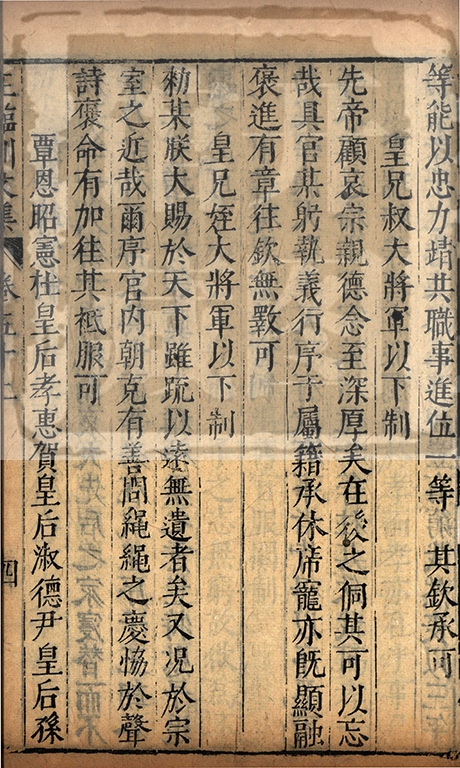 等能以忠力靖共職事進位一等其欽承可
皇兄叔大將軍以下制
先帝顧哀宗親德念至深厚矣在後之侗其可以忘
哉具官某躬執義行序于屬籍承休席寵亦既顯融
褒進有章往欽無斁可
皇兄姪大將軍以下制
勑某朕大賜於天下雖疏以遠無遺者矣又況於宗
室之近哉爾序官內朝克有善問繩繩之慶恊於聲
詩褒命有加往其祗服可
覃恩昭憲杜皇后孝惠賀皇后淑德尹皇后孫
王臨川文集 卷五十二 四